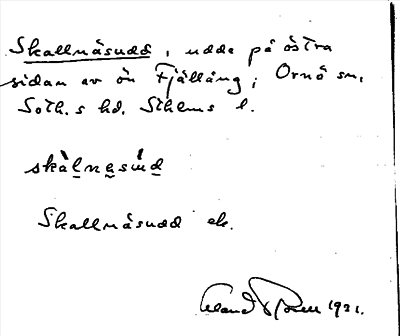 Skallnäsudd, udde på östra
sidan av ön Fjällång; Ornö sn,
Soth.s hd. Sthlms l.
skàlnesúd
Skallnäsudd ek.
1921.